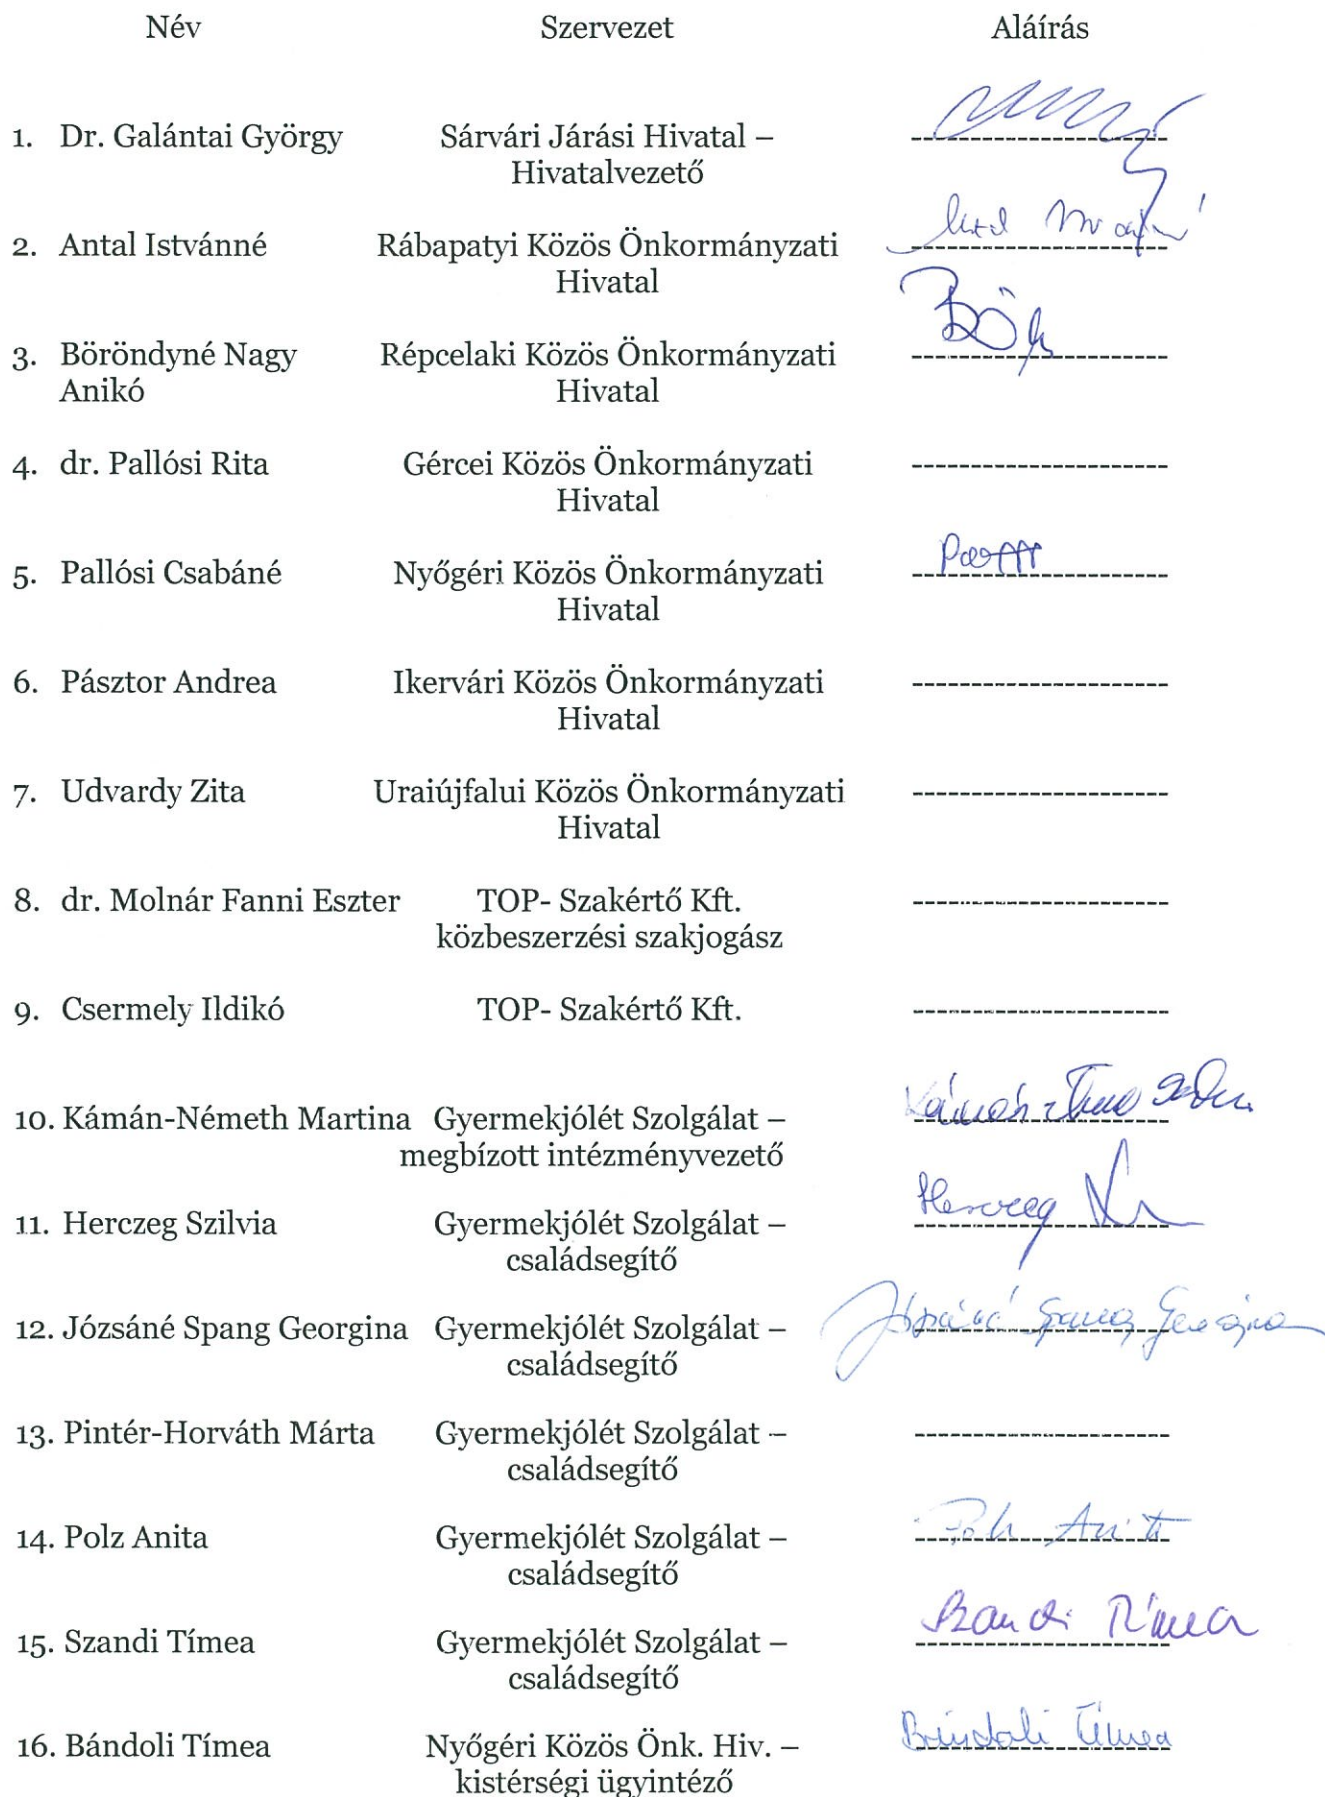 Név Szervezet Aláírás
1. Dr. Galántai György Sárvári Járási Hivatal –
Hivatalvezető
2. Antal Istvánné Rábapatyi Közös Önkormányzati
Hivatal
3. Böröndyné Nagy Répcelaki Közös Önkormányzati
Anikó Hivatal
4. dr. Pallósi Rita Gércei Közös Önkormányzati
Hivatal
5. Pallósi Csabáné Nyőgéri Közös Önkormányzati
Hivatal
6. Pásztor Andrea Ikervári Közös Önkormányzati
Hivatal
7. Udvardy Zita Uraiújfalui Közös Önkormányzati
Hivatal
8. dr. Molnár Fanni Eszter TOP- Szakértő Kft.
közbeszerzési szakjogász
9. Csermely Ildikó TOP- Szakértő Kft.
10. Kámán-Németh Martina Gyermekjólét Szolgálat –
megbízott intézményvezető
11. Herczeg Szilvia Gyermekjólét Szolgálat – Herczeg
családsegítő
12. Józsáné Spang Georgina Gyermekjólét Szolgálat – Józsáné Spang Georgina
családsegítő
13. Pintér-Horváth Márta Gyermekjólét Szolgálat –
családsegítő
14. Polz Anita Gyermekjólét Szolgálat – Polz Anita
családsegítő
15. Szandi Tímea Gyermekjólét Szolgálat – Szandi Tímea
családsegítő
16. Bándoli Tímea Nyőgéri Közös Önk. Hiv. – Bándoli Tímea
kistérségi ügyintéző